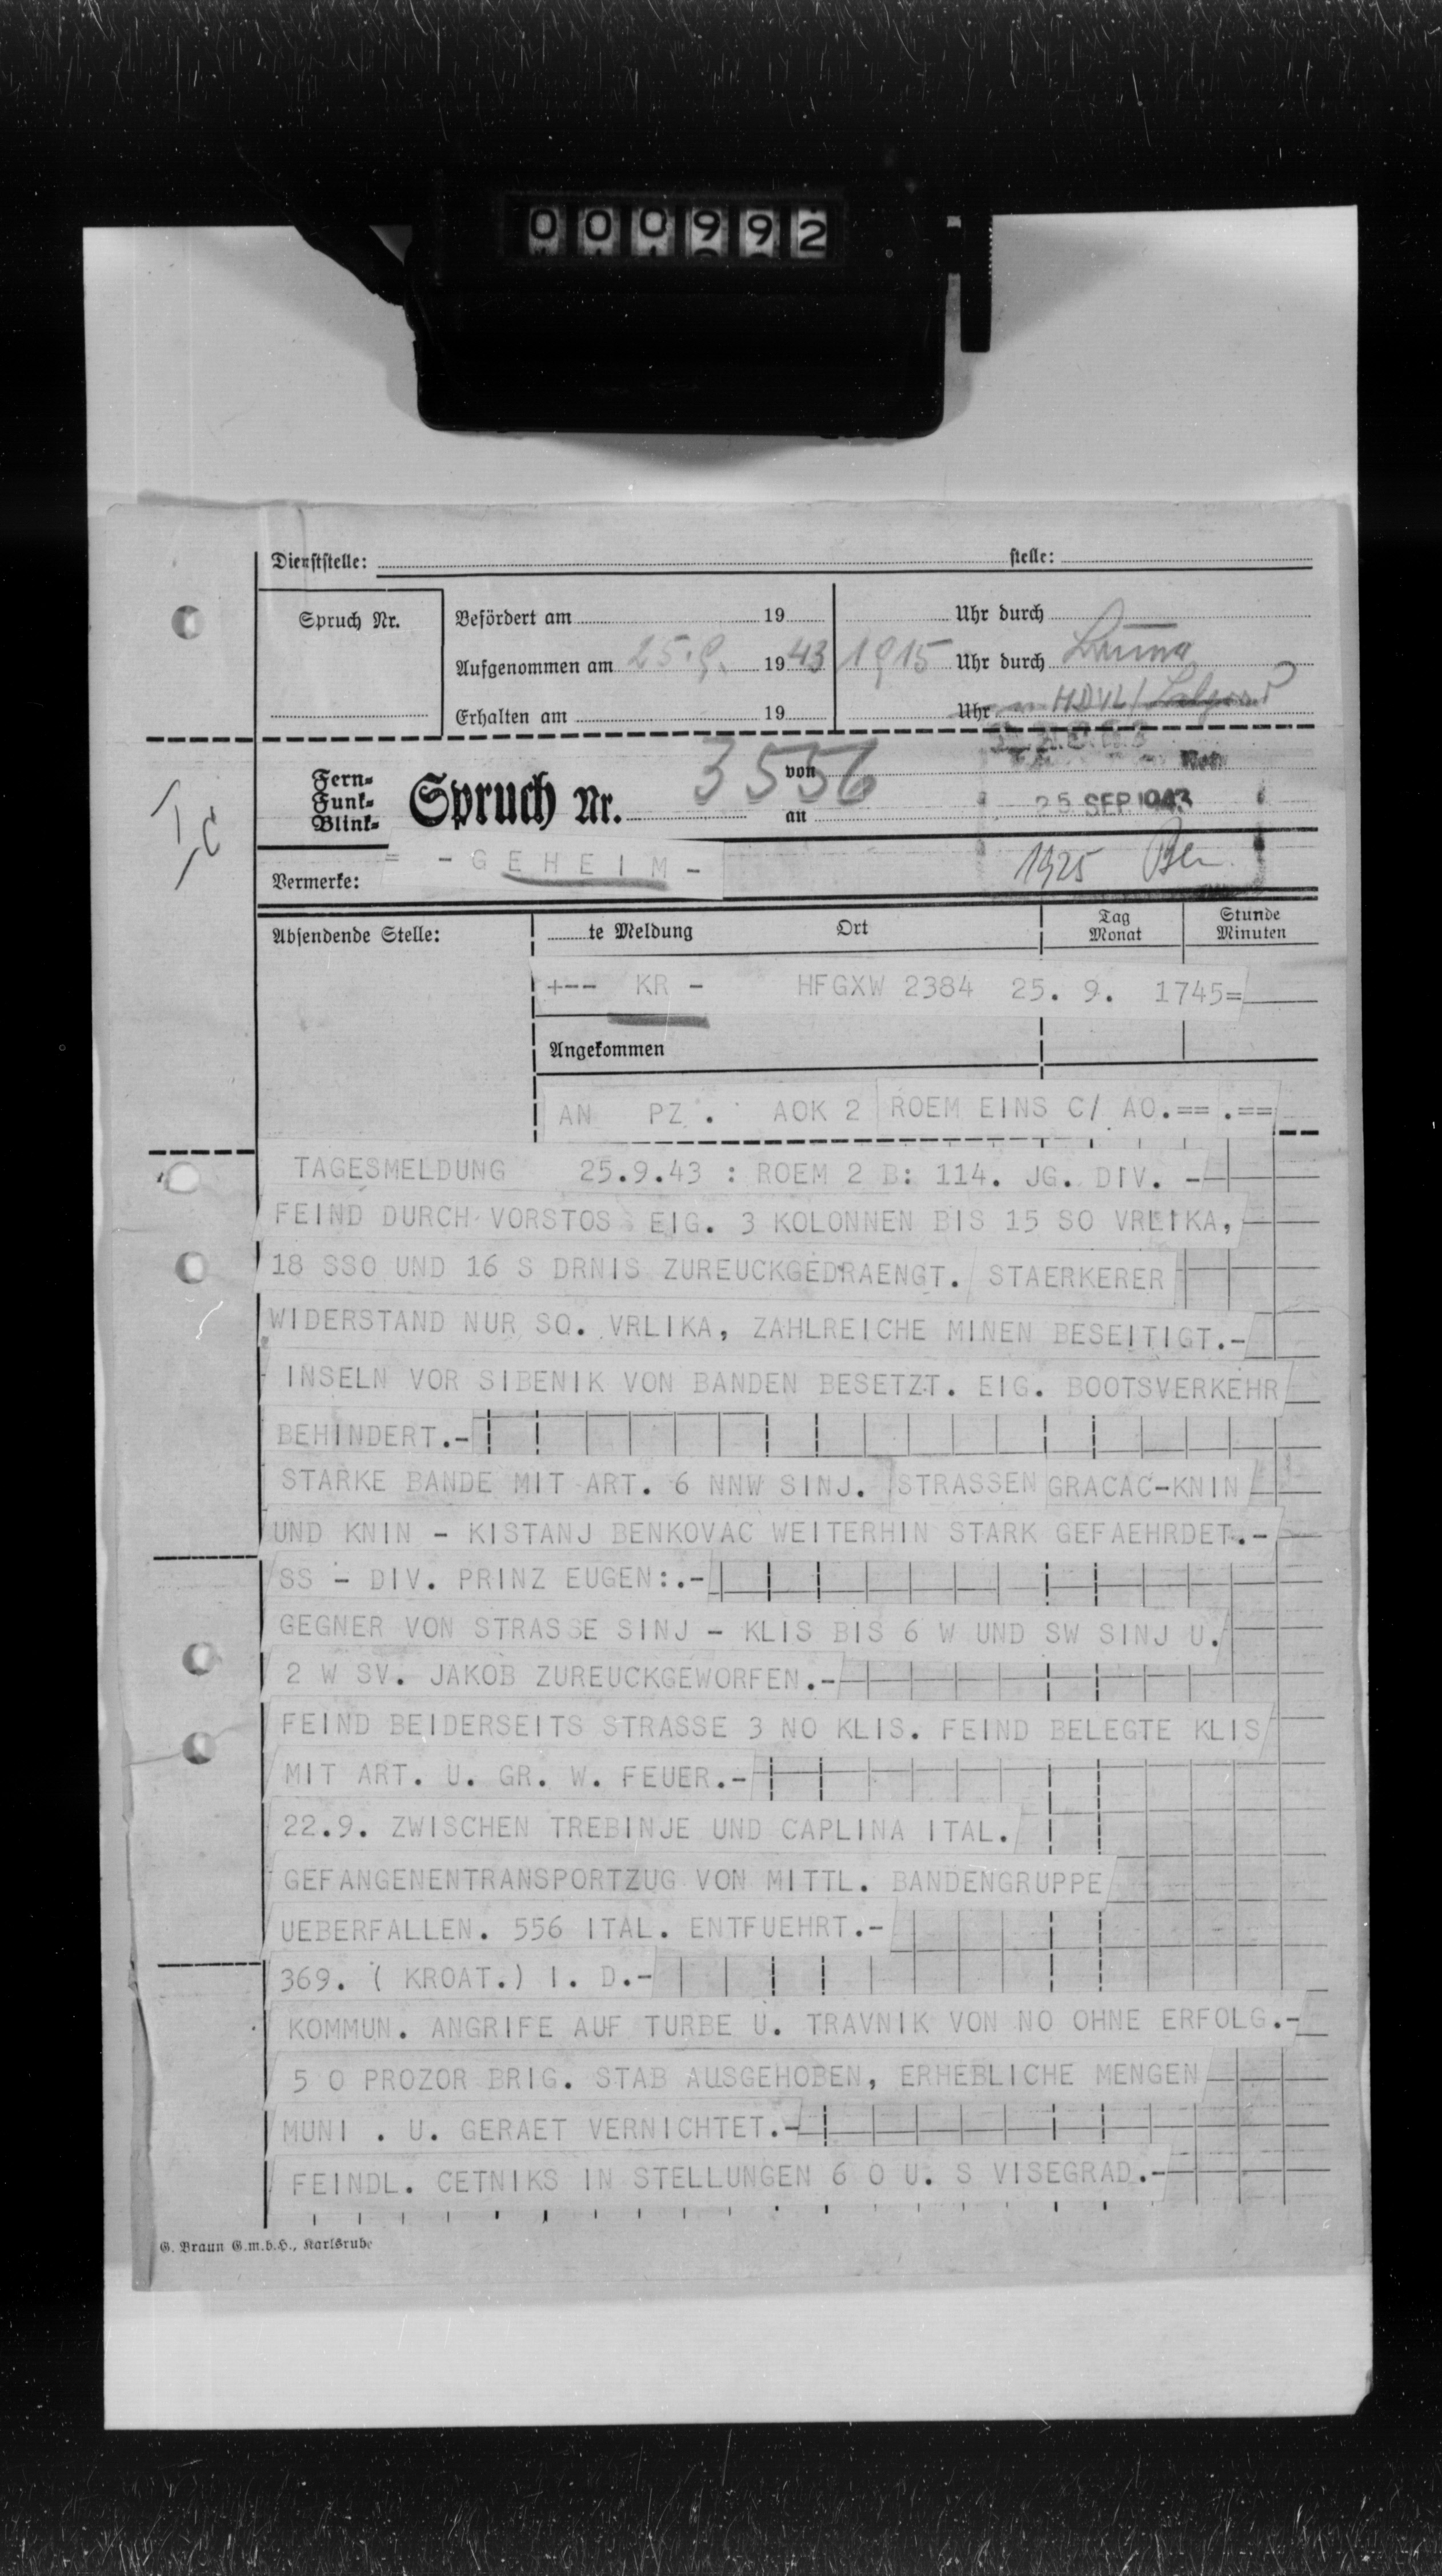 000992
Dienststelle: stelle:
Spruch Nr.
Befördert am 19 Uhr durch
Aufgenommen am 25.9. 1943 1915 Uhr durch
Erhalten am 19 Uhr
Fern-
Funk-
Blink-
Spruch Nr. 3556 von
an
25. SEP. 1943
Ic
= - G E H E I M -
1925
Vermerke:
Absendende Stelle: te Meldung Ort Tag Monat Stunde Minuten
+-- KR - HFGXW 2384 25. 9. 1745=
Angekommen
AN PZ . AOK 2 ROEM EINS C/ AO.== .==
TAGESMELDUNG 25.9.43 : ROEM 2 B: 114. JG. DIV. -
FEIND DURCH VORSTOSS EIG. 3 KOLONNEN BIS 15 SO VRLIKA,
18 SSO UND 16 S DRNIS ZUREUCKGEDRAENGT. STAERKERER
WIDERSTAND NUR SO. VRLIKA, ZAHLREICHE MINEN BESEITIGT.-
INSELN VOR SIBENIK VON BANDEN BESETZT. EIG. BOOTSVERKEHR
BEHINDERT.-
STARKE BANDE MIT ART. 6 NNW SINJ. STRASSEN GRACAC-KNIN
UND KNIN - KISTANJ BENKOVAC WEITERHIN STARK GEFAEHRDET.-
SS - DIV. PRINZ EUGEN:.-
GEGNER VON STRASSE SINJ - KLIS BIS 6 W UND SW SINJ U.
2 W SV. JAKOB ZUREUCKGEWORFEN.-
FEIND BEIDERSEITS STRASSE 3 NO KLIS. FEIND BELEGTE KLIS
MIT ART. U. GR. W. FEUER.-
22.9. ZWISCHEN TREBINJE UND CAPLINA ITAL.
GEFANGENENTRANSPORTZUG VON MITTL. BANDENGRUPPE
UEBERFALLEN. 556 ITAL. ENTFUEHRT.-
369. ( KROAT.) I. D.-
KOMMUN. ANGRIFE AUF TURBE U. TRAVNIK VON NO OHNE ERFOLG.-
5 O PROZOR BRIG. STAB AUSGEHOBEN, ERHEBLICHE MENGEN
MUNI . U. GERAET VERNICHTET.-
FEINDL. CETNIKS IN STELLUNGEN 6 O U. S VISEGRAD.-
G. Braun G.m.b.H., Karlsruhe